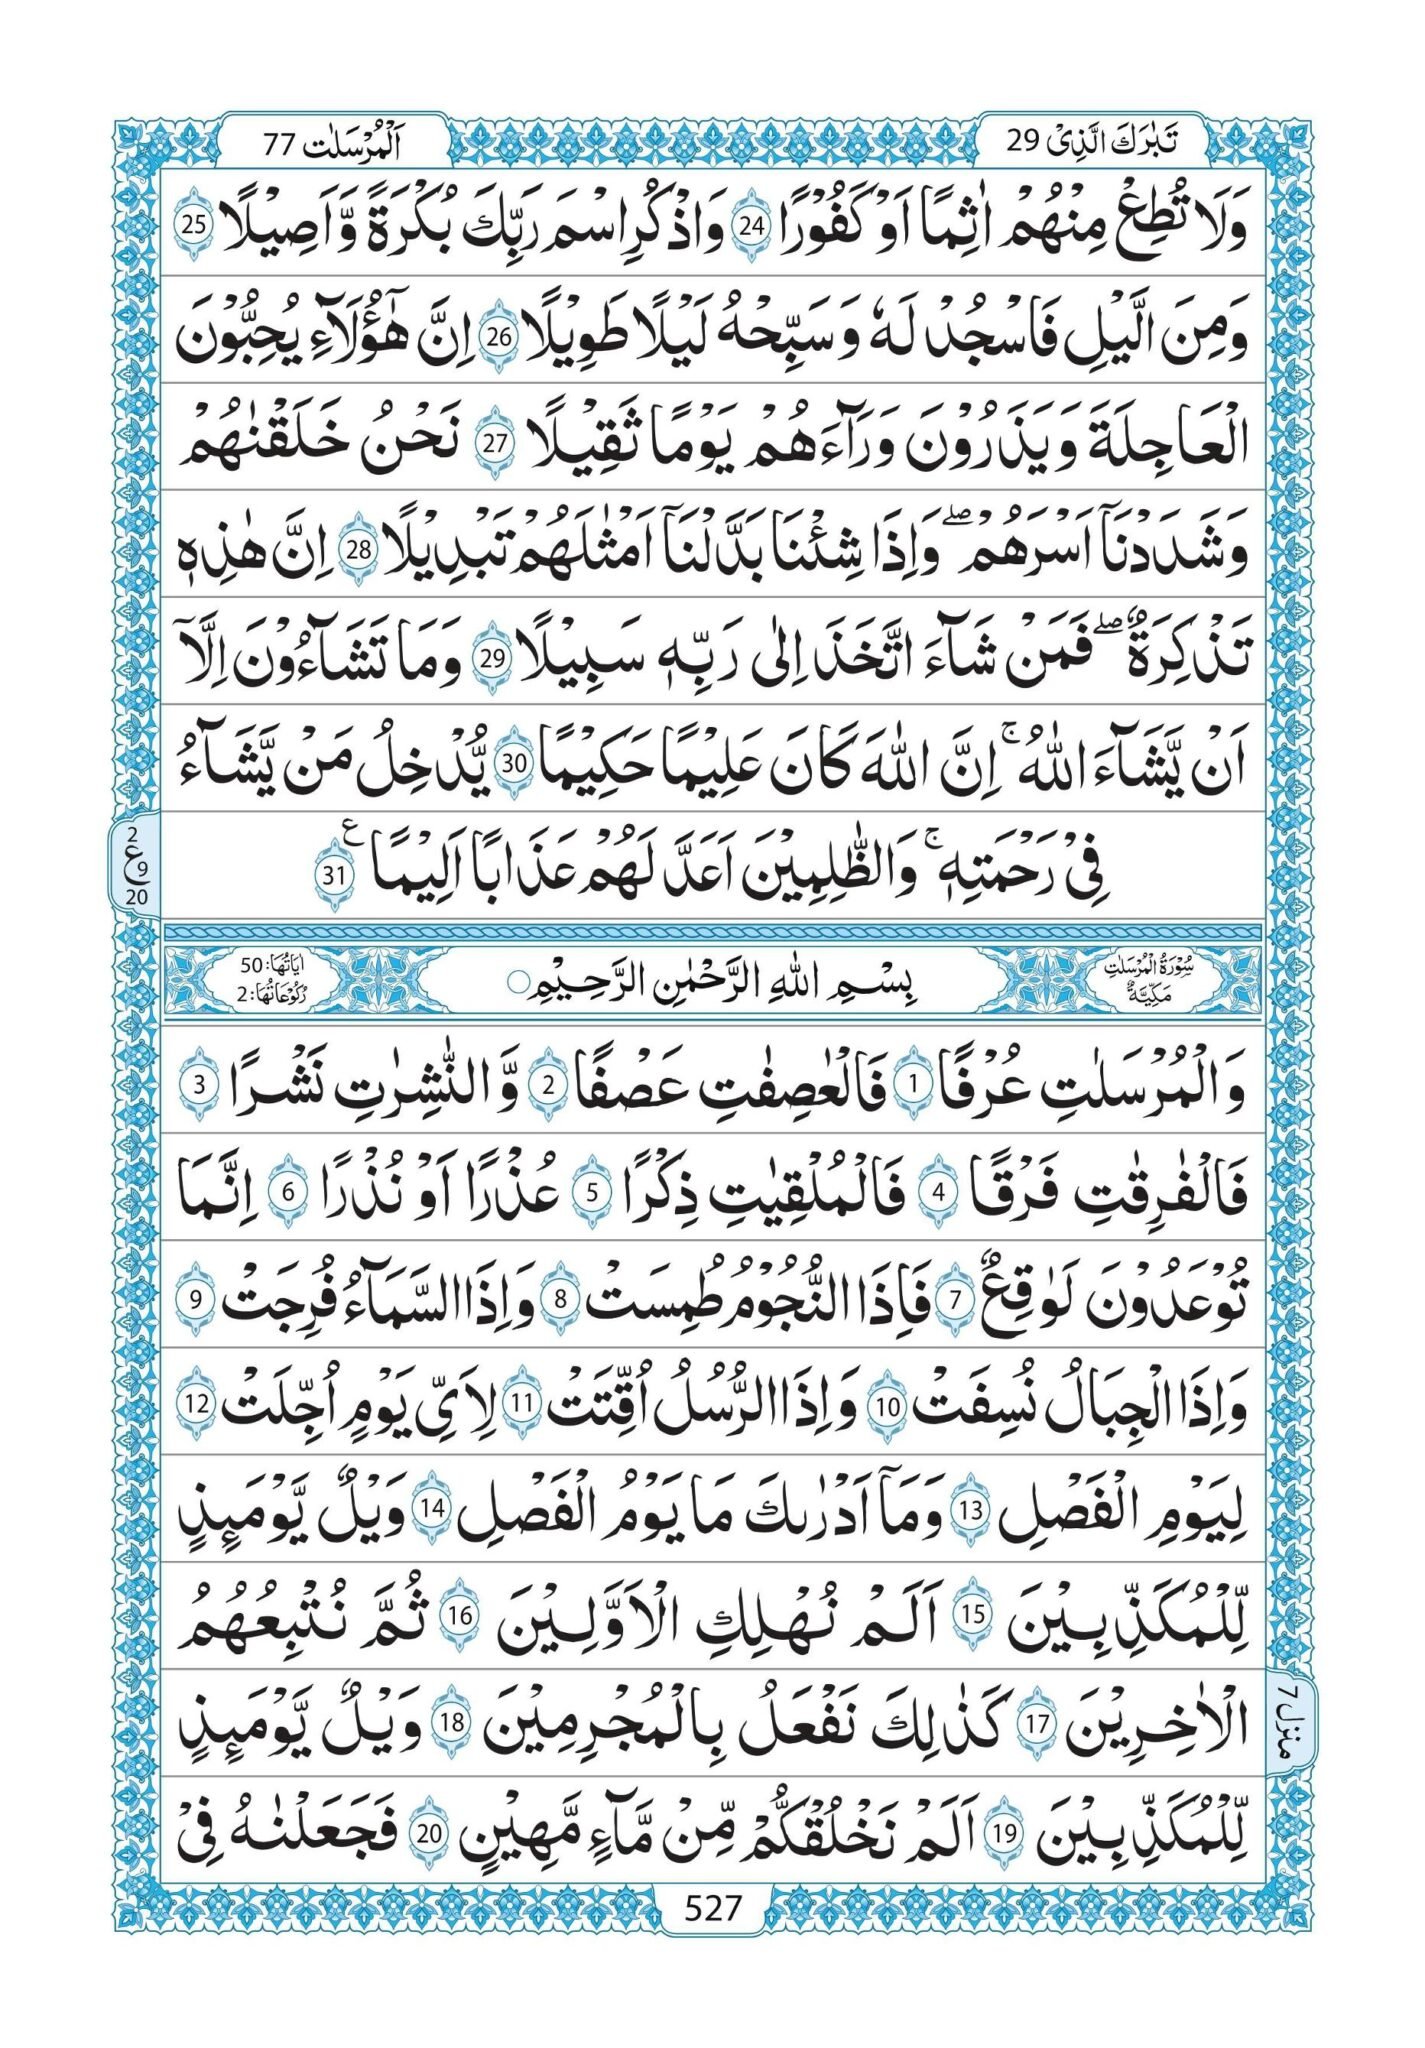 تَبٰرَكَ الَّذِیْ 29
اَلْمُرْسَلٰت 77
وَلَا تُطِعْ مِنْهُمْ اٰثِمًا اَوْ كَفُوْرًا 24 وَاذْكُرِ اسْمَ رَبِّكَ بُكْرَةً وَّاَصِیْلًا 25
وَمِنَ الَّیْلِ فَاسْجُدْ لَهٗ وَسَبِّحْهُ لَیْلًا طَوِیْلًا 26 اِنَّ هٰۤؤُلَآءِ یُحِبُّوْنَ
الْعَاجِلَةَ وَیَذَرُوْنَ وَرَآءَهُمْ یَوْمًا ثَقِیْلًا 27 نَحْنُ خَلَقْنٰهُمْ
وَشَدَدْنَاۤ اَسْرَهُمْ ۖ وَاِذَا شِئْنَا بَدَّلْنَاۤ اَمْثٰلَهُمْ تَبْدِیْلًا 28 اِنَّ هٰذِهٖ
تَذْكِرَةٌ ۖ فَمَنْ شَآءَ اتَّخَذَ اِلٰی رَبِّهٖ سَبِیْلًا 29 وَمَا تَشَآءُوْنَ اِلَّاۤ
اَنْ یَّشَآءَ اللّٰهُ ۚ اِنَّ اللّٰهَ كَانَ عَلِیْمًا حَكِیْمًا 30 یُّدْخِلُ مَنْ یَّشَآءُ
فِیْ رَحْمَتِهٖ ۚ وَالظّٰلِمِیْنَ اَعَدَّ لَهُمْ عَذَابًا اَلِیْمًا ع 31
2
ع 9
20
سُوْرَةُ الْمُرْسَلٰتِ
مَكِّیَّةٌ
بِسْمِ اللّٰهِ الرَّحْمٰنِ الرَّحِیْمِ
اٰیَاتُهَا: 50
رُكُوْعَاتُهَا: 2
وَالْمُرْسَلٰتِ عُرْفًا 1 فَالْعٰصِفٰتِ عَصْفًا 2 وَّالنّٰشِرٰتِ نَشْرًا 3
فَالْفٰرِقٰتِ فَرْقًا 4 فَالْمُلْقِیٰتِ ذِكْرًا 5 عُذْرًا اَوْ نُذْرًا 6 اِنَّمَا
تُوْعَدُوْنَ لَوٰقِعٌ 7 فَاِذَا النُّجُوْمُ طُمِسَتْ 8 وَاِذَا السَّمَآءُ فُرِجَتْ 9
وَاِذَا الْجِبَالُ نُسِفَتْ 10 وَاِذَا الرُّسُلُ اُقِّتَتْ 11 لِاَیِّ یَوْمٍ اُجِّلَتْ 12
لِیَوْمِ الْفَصْلِ 13 وَمَاۤ اَدْرٰىكَ مَا یَوْمُ الْفَصْلِ 14 وَیْلٌ یَّوْمَىِٕذٍ
لِّلْمُكَذِّبِیْنَ 15 اَلَمْ نُهْلِكِ الْاَوَّلِیْنَ 16 ثُمَّ نُتْبِعُهُمُ
الْاٰخِرِیْنَ 17 كَذٰلِكَ نَفْعَلُ بِالْمُجْرِمِیْنَ 18 وَیْلٌ یَّوْمَىِٕذٍ
منزل 7
لِّلْمُكَذِّبِیْنَ 19 اَلَمْ نَخْلُقْكُّمْ مِّنْ مَّآءٍ مَّهِیْنٍ 20 فَجَعَلْنٰهُ فِیْ
527